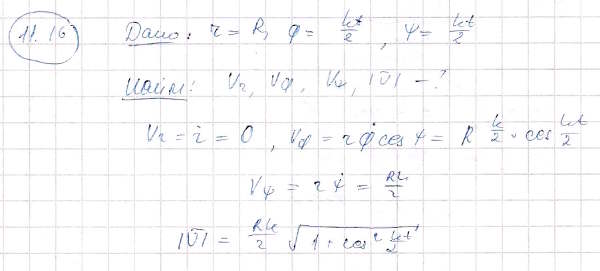 11.16 Дано: r = R, φ = kt/2, ψ = kt/2
Найти: Vr, Vφ, Vψ, |V̄| - ?
Vr = ṙ = 0, Vφ = r φ̇ cos ψ = R k/2 · cos kt/2
Vψ = r ψ̇ = Rk/2
|V̄| = Rk/2 √(1 + cos² kt/2)